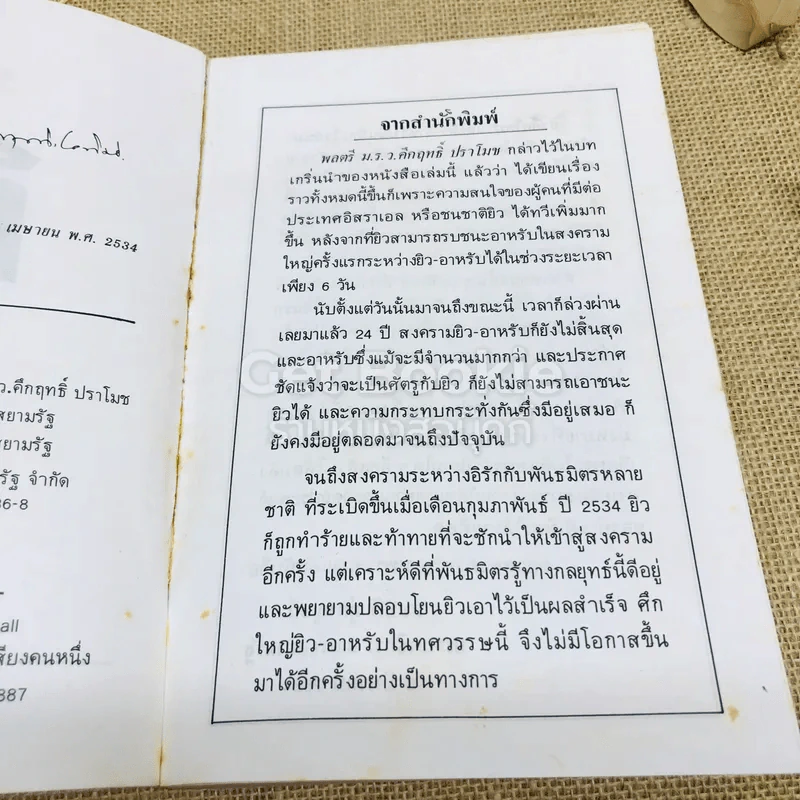 เมษายน พ.ศ. 2534
ว.คึกฤทธิ์ ปราโมช
สยามรัฐ
สยามรัฐ
รัฐ จำกัด
36-8
all
สียงคนหนึ่ง
387
จากสำนักพิมพ์
พลตรี ม.ร.ว.คึกฤทธิ์ ปราโมช กล่าวไว้ในบท
เกริ่นนำของหนังสือเล่มนี้ แล้วว่า ได้เขียนเรื่อง
ราวทั้งหมดนี้ขึ้นก็เพราะความสนใจของผู้คนที่มีต่อ
ประเทศอิสราเอล หรือชนชาติยิว ได้ทวีเพิ่มมาก
ขึ้น หลังจากที่ยิวสามารถรบชนะอาหรับในสงคราม
ใหญ่ครั้งแรกระหว่างยิว-อาหรับได้ในช่วงระยะเวลา
เพียง 6 วัน
นับตั้งแต่วันนั้นมาจนถึงขณะนี้ เวลาก็ล่วงผ่าน
เลยมาแล้ว 24 ปี สงครามยิว-อาหรับก็ยังไม่สิ้นสุด
และอาหรับซึ่งแม้จะมีจำนวนมากกว่า และประกาศ
ชัดแจ้งว่าจะเป็นศัตรูกับยิว ก็ยังไม่สามารถเอาชนะ
ยิวได้ และความกระทบกระทั่งกันซึ่งมีอยู่เสมอ ก็
ยังคงมีอยู่ตลอดมาจนถึงปัจจุบัน
จนถึงสงครามระหว่างอิรักกับพันธมิตรหลาย
ชาติ ที่ระเบิดขึ้นเมื่อเดือนกุมภาพันธ์ ปี 2534 ยิว
ก็ถูกทำร้ายและท้าทายที่จะชักนำให้เข้าสู่สงคราม
อีกครั้ง แต่เคราะห์ดีที่พันธมิตรรู้ทางกลยุทธ์นี้ดีอยู่
และพยายามปลอบโยนยิวเอาไว้เป็นผลสำเร็จ ศึก
ใหญ่ยิว-อาหรับในทศวรรษนี้ จึงไม่มีโอกาสขึ้น
มาได้อีกครั้งอย่างเป็นทางการ
Get Bookie
ร้านหนังสือเก่า